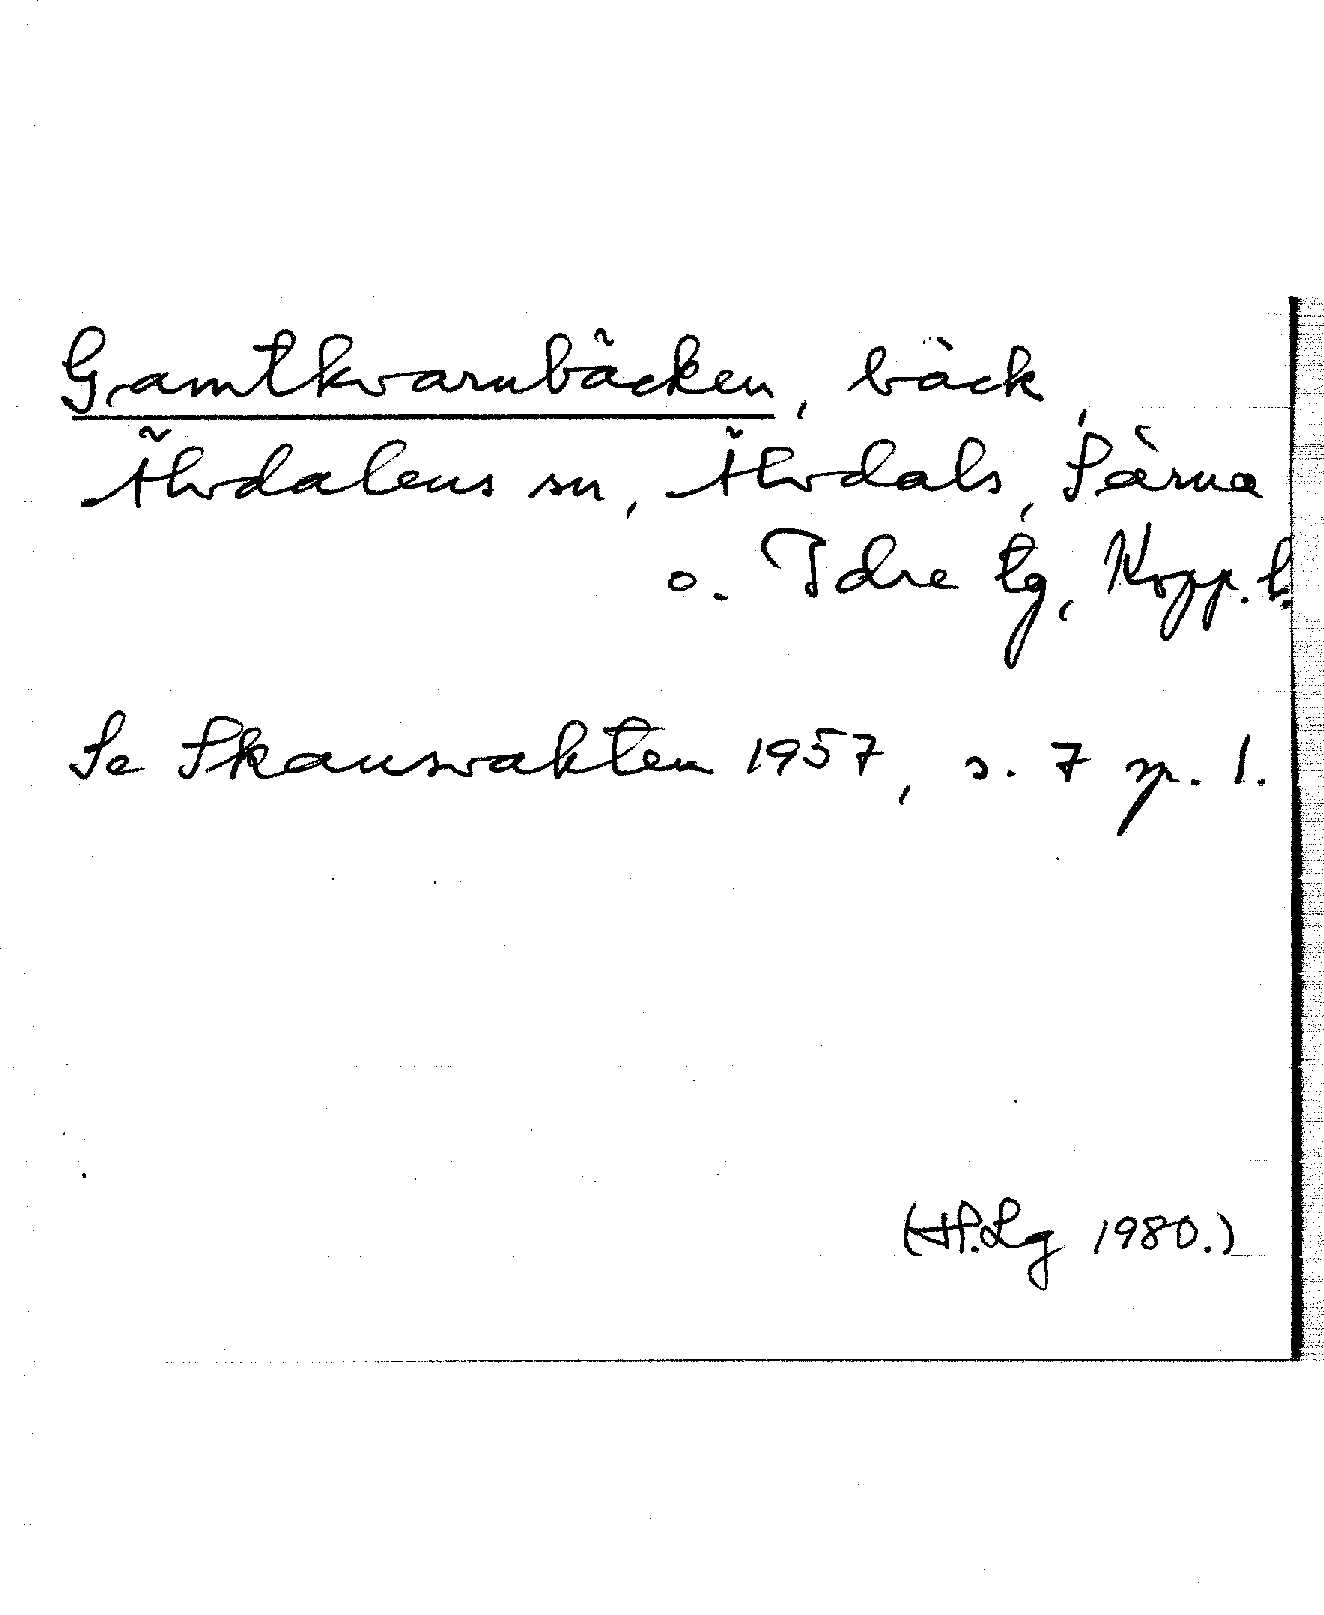 Gamtkvarnbäcken, bäck,
Älvdalens sn, Älvdals, Särna
o. Idre tg, Kopp. l.
Se Skansvakten 1957, s. 7 sp. 1.
(H.Lg 1980.)